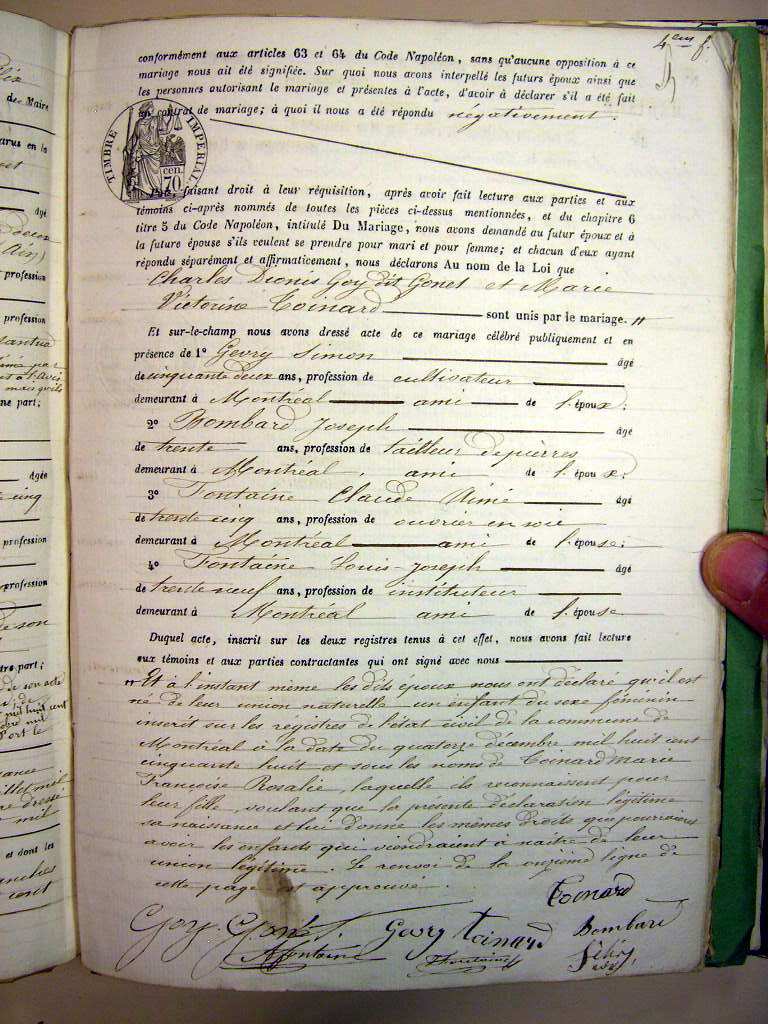 4em f.
conformément aux articles 63 et 64 du Code Napoléon, sans qu'aucune opposition à ce
mariage nous ait été signifiée. Sur quoi nous avons interpellé les futurs époux ainsi que
les personnes autorisant le mariage et présentes à l'acte, d'avoir à déclarer s'il a été fait
un contrat de mariage; à quoi il nous a été répondu négativement.
TIMBRE IMPERIAL
70 cen.
faisant droit à leur réquisition, après avoir fait lecture aux parties et aux
témoins ci-après nommés de toutes les pièces ci-dessus mentionnées, et du chapitre 6
titre 5 du Code Napoléon, intitulé Du Mariage, nous avons demandé au futur époux et à
la future épouse s'ils veulent se prendre pour mari et pour femme; et chacun d'eux ayant
répondu séparément et affirmativement, nous déclarons Au nom de la Loi que
Charles Dionis Goy dit Gonet et Marie
Victorine Coinard sont unis par le mariage. //
Et sur-le-champ nous avons dressé acte de ce mariage célébré publiquement et en
présence de 1° Gevry Simon âgé
de cinquante deux ans, profession de cultivateur
demeurant à Montréal ami de l'époux;
2° Bombard Joseph âgé
de trente ans, profession de tailleur de pierres
demeurant à Montréal, ami de l'époux;
3° Fontaine Claude Aimé âgé
de trente cinq ans, profession de ouvrier en soie
demeurant à Montréal ami de l'épouse;
4° Fontaine Louis-Joseph âgé
de trente neuf ans, profession de instituteur
demeurant à Montréal ami de l'épouse
Duquel acte, inscrit sur les deux registres tenus à cet effet, nous avons fait lecture
aux témoins et aux parties contractantes qui ont signé avec nous
// Et à l'instant même les dits époux nous ont déclaré qu'il est
né de leur union naturelle un enfant du sexe féminin
inscrit sur les registres de l'état civil de la commune de
Montréal à la date du quatorze décembre mil huit cent
cinquante huit et sous les noms de Coinard Marie
Françoise Rosalie, laquelle ils reconnaissent pour
leur fille, voulant que la présente déclaration légitime
sa naissance et lui donne les mêmes droits que pourraient
avoir les enfants qui viendraient à naître de leur
union légitime. Le renvoi de la onzième ligne de
cette page est approuvé.
Coinard
Goy Gonet. Gevry Coinard Bombard
Fontaine Fontaine